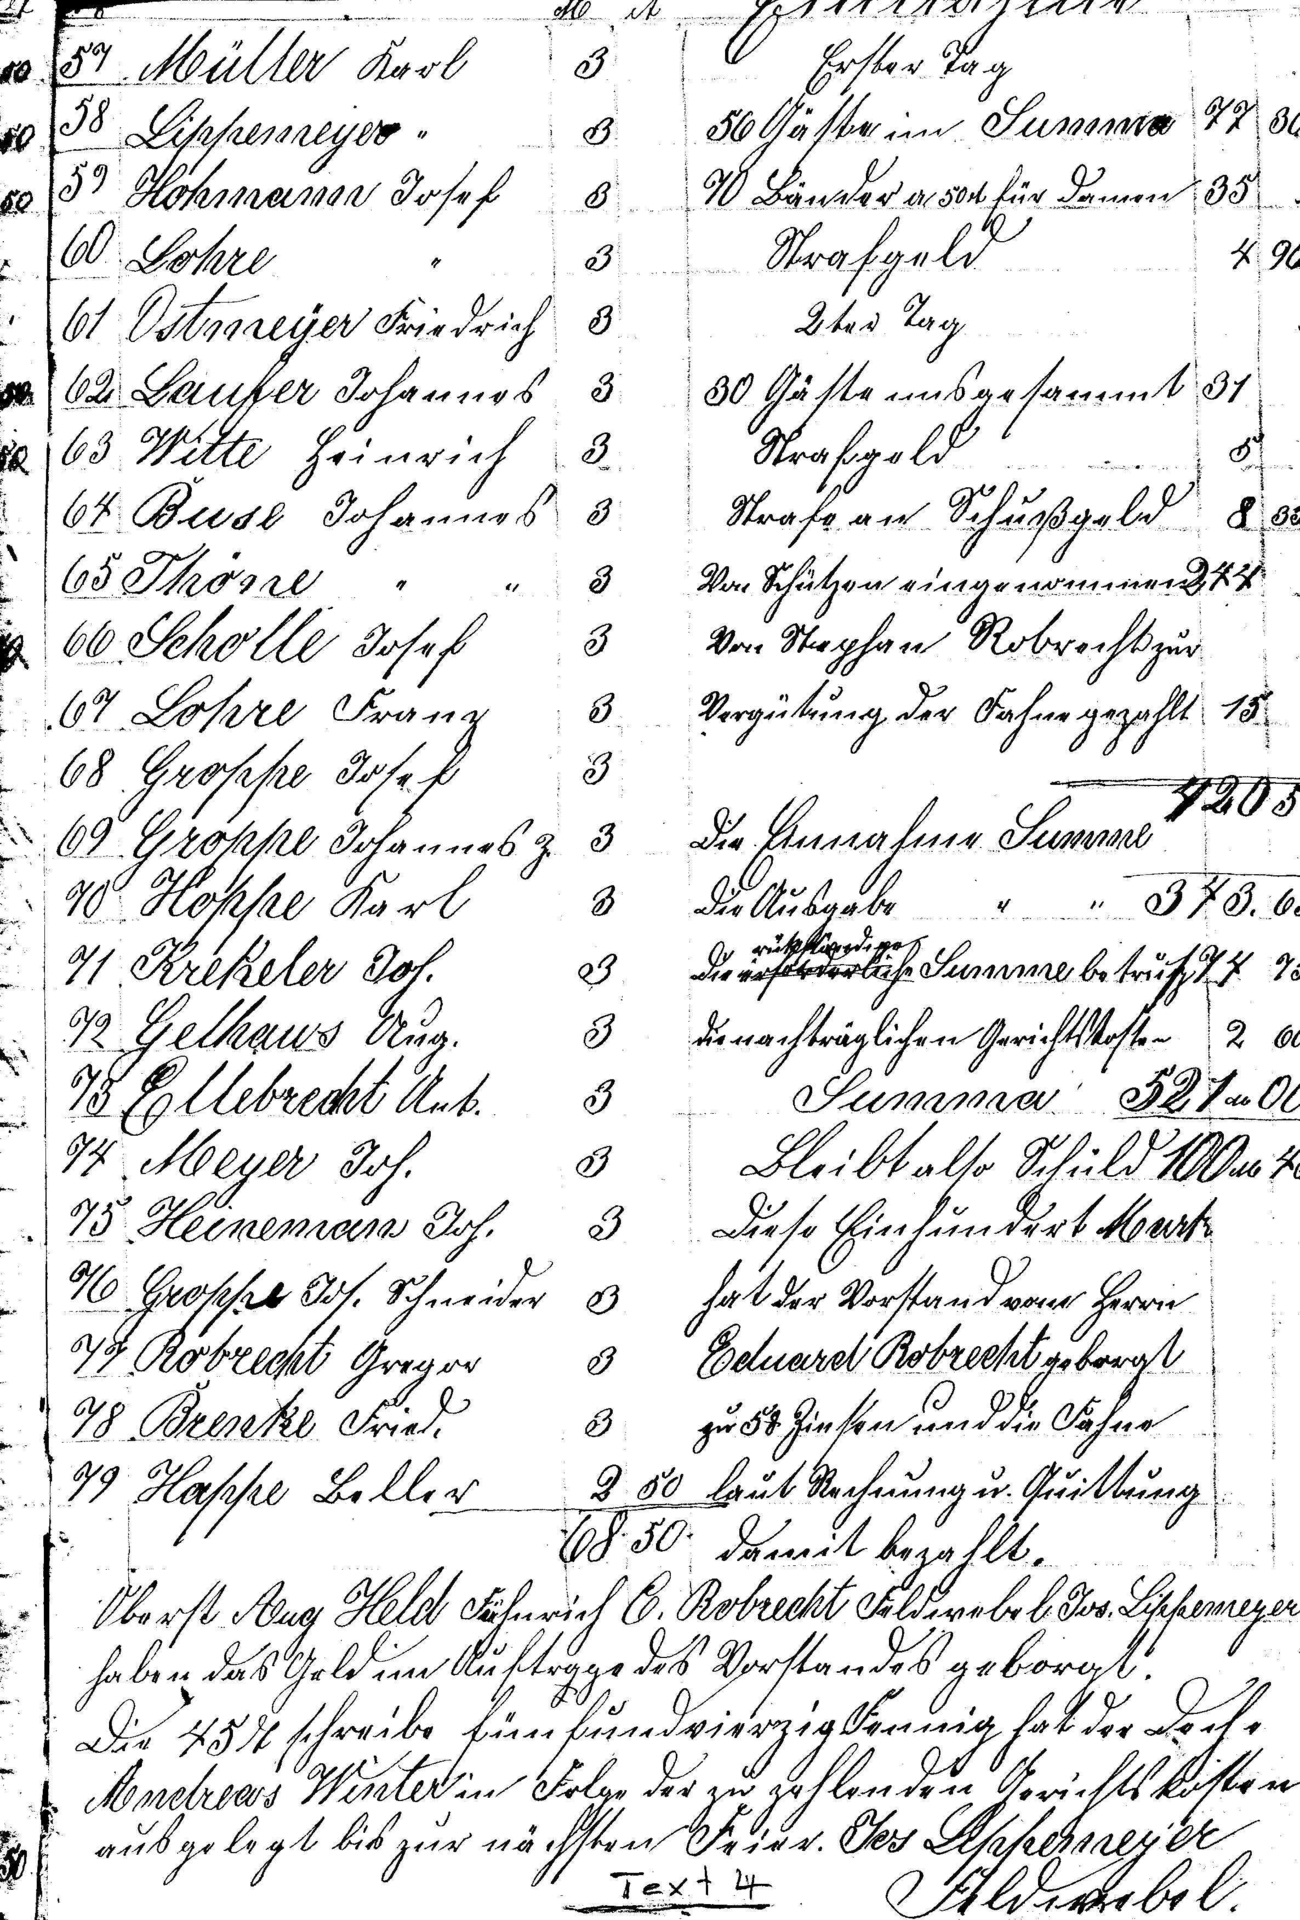 M d Einnahme
57 Müller Karl 3
58 Lippemeyer " 3
59 Hohmann Josef 3
60 Lohre " 3
61 Ostmeyer Friedrich 3
62 Laufer Johannes 3
63 Witte Heinrich 3
64 Buse Johannes 3
65 Thöne " " 3
66 Scholle Josef 3
67 Lohre Franz 3
68 Groppe Josef 3
69 Groppe Johannes z. 3
70 Hoppe Karl 3
71 Krekeler Joh. 3
72 Gelhaus Aug. 3
73 Ellebrecht Ant. 3
74 Meyer Joh. 3
75 Heineman Joh. 3
76 Groppe Jos. Schneider 3
77 Robrecht Gregor 3
78 Brenke Fried. 3
79 Happe Beller 2 50
68.50.
Erster Tag
56 Gäste im Summa 77 30
70 Bänder a 50 d für Damen 35
Strafgeld 4 90
2ter Tag
30 Gäste insgesammt 31
Strafgeld 5
Strafe an Schußgeld 8 33
Von Schützen eingenommen 244
Von Stephan Robrecht zur
Vergütung der Fahne gezahlt 15
4205
die Einnahme Summe
die Ausgabe " " 343. 6
rückständige
die erforderliche Summe betrug 174 7
die nachträglichen Gerichtskosten 2 60
Summa 521 M 00
Bleibt also Schuld 100 M 4
Diese Einhundert Mark
hat der Vorstand vom Herrn
Eduard Robrecht geborgt
zu 5% Zinsen und die Fahne
laut Rechnung u. Quittung
damit bezahlt.
Oberst Aug Held Fähnrich E. Robrecht Feldwebel Jos. Lippemeyer
haben das Geld im Auftrage des Vorstandes geborgt.
Die 45 d schreibe fünfundvierzig Pfennig hat der Deche
Andreas Winter in Folge der zu zahlenden Gerichtskosten
ausgelegt bis zur nächsten Feier. Jos Lippemeyer
Feldwebel.
Text 4